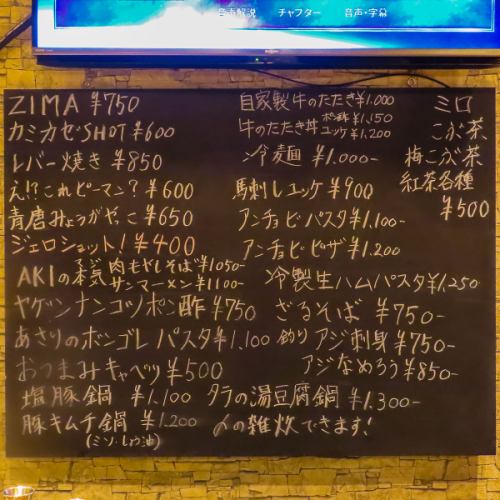 音声解説 チャプター 音声・字幕
ZIMA ¥750
カミカゼSHOT ¥600
レバー焼き ¥850
え!?これピーマン? ¥600
青唐みょうがやっこ ¥650
ジェロショット! ¥400
AKIの本気 マジ 肉もやしそば ¥1050-
サンマーメン ¥1100-
ヤゲンナンコツポン酢 ¥750
あさりのボンゴレパスタ ¥1.100
おつまみキャベツ ¥500
塩豚鍋 ¥1.100
豚キムチ鍋 ¥1.200
(ミソ・しょう油)
自家製牛のたたき ¥1.000
牛のたたき丼 ポン酢 ¥1.150
ユッケ ¥1.200
冷麺 ¥1.000-
馬刺しユッケ ¥900
アンチョビパスタ ¥1.100-
アンチョビピザ ¥1.200
冷製生ハムパスタ ¥1.250
ざるそば ¥750-
釣りアジ刺身 ¥750-
アジなめろう ¥850-
タラの湯豆腐鍋 ¥1.300-
〆の雑炊できます!
ミロ
こぶ茶
梅こぶ茶
紅茶各種
¥500